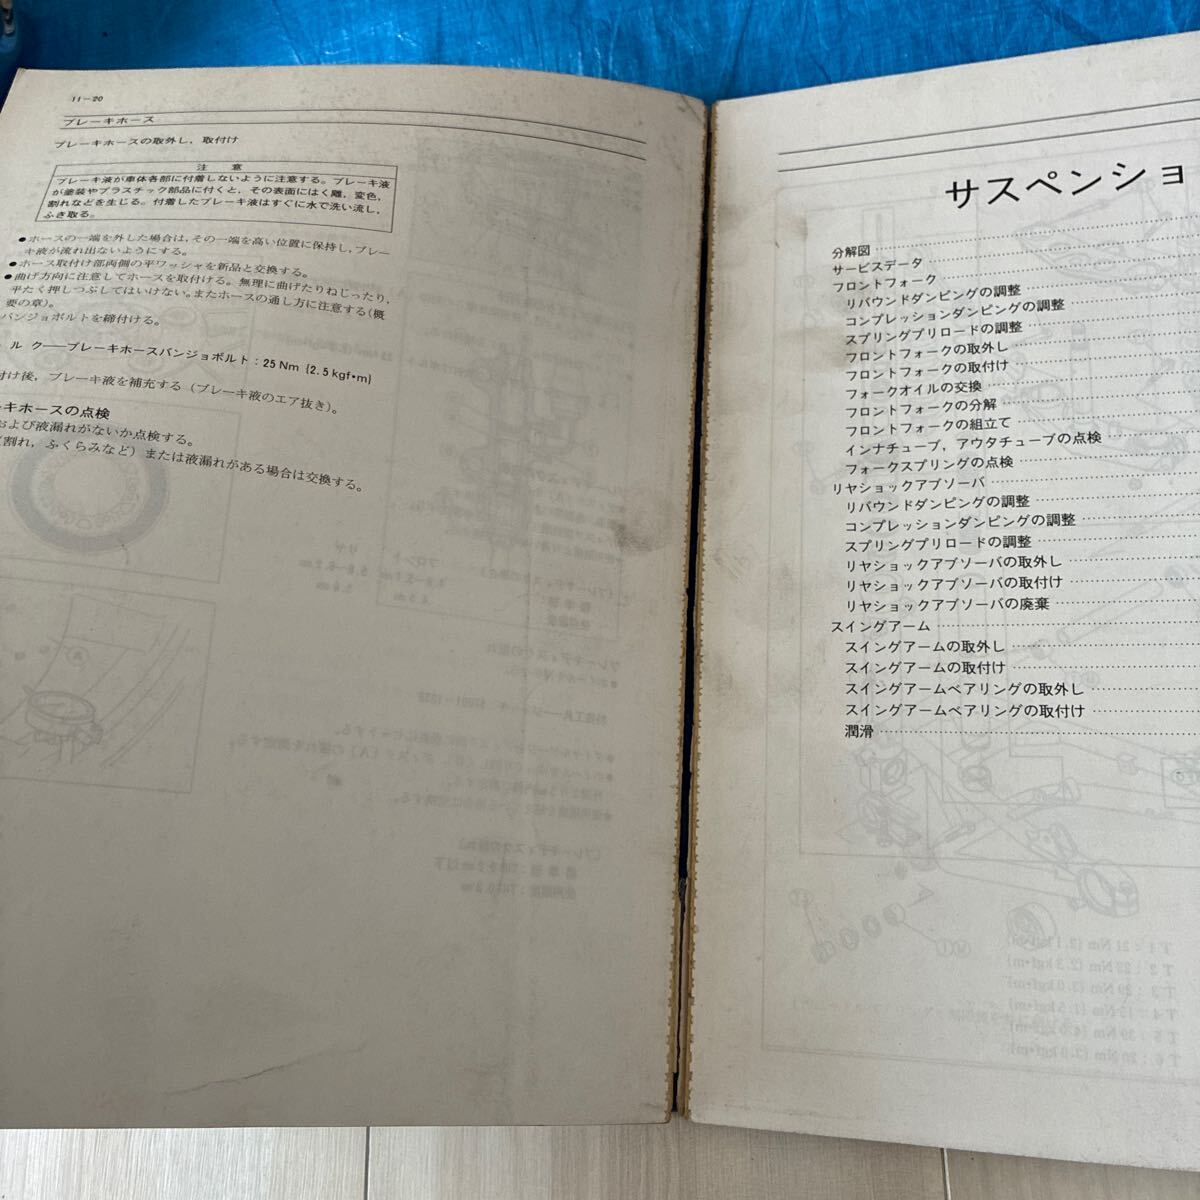 11－20
ブレーキホース
ブレーキホースの取外し，取付け
注　意
ブレーキ液が車体各部に付着しないように注意する。ブレーキ液
が塗装やプラスチック部品に付くと，その表面にはく離，変色，
割れなどを生じる。付着したブレーキ液はすぐに水で洗い流し，
ふき取る。
●ホースの一端を外した場合は，その一端を高い位置に保持し，ブレー
キ液が流れ出ないようにする。
●ホース取付け部両側の平ワッシャを新品と交換する。
●曲げ方向に注意してホースを取付ける。無理に曲げたりねじったり，
平たく押しつぶしてはいけない。またホースの通し方に注意する(概
要の章)。
バンジョボルトを締付ける。
ルク――ブレーキホースバンジョボルト：25 Nm {2.5 kgf•m}
付け後，ブレーキ液を補充する（ブレーキ液のエア抜き）。
キホースの点検
および液漏れがないか点検する。
(割れ，ふくらみなど）または液漏れがある場合は交換する。
サスペンショ
分解図
サービスデータ
フロントフォーク
リバウンドダンピングの調整
コンプレッションダンピングの調整
スプリングプリロードの調整
フロントフォークの取外し
フロントフォークの取付け
フォークオイルの交換
フロントフォークの分解
フロントフォークの組立て
インナチューブ，アウタチューブの点検
フォークスプリングの点検
リヤショックアブソーバ
リバウンドダンピングの調整
コンプレッションダンピングの調整
スプリングプリロードの調整
リヤショックアブソーバの取外し
リヤショックアブソーバの取付け
リヤショックアブソーバの廃棄
スイングアーム
スイングアームの取外し
スイングアームの取付け
スイングアームベアリングの取外し
スイングアームベアリングの取付け
潤滑